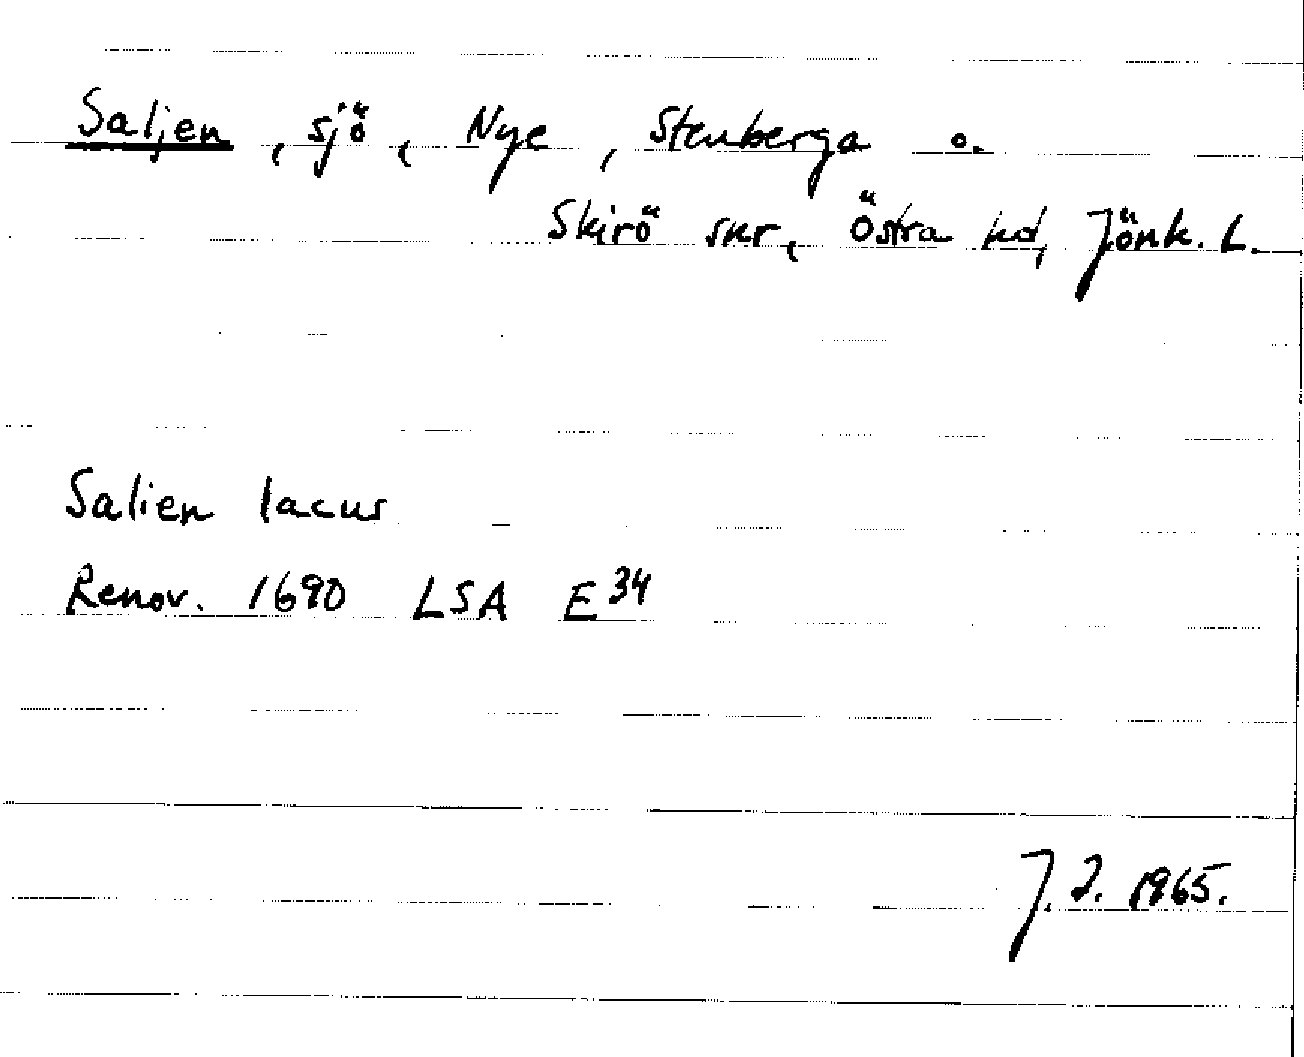 Saljen, sjö, Nye, Stenberga o.
Skirö snr, Östra hd, Jönk. L.
Salien lacus
Renov. 1690 LSA E34
J. 2. 1965.